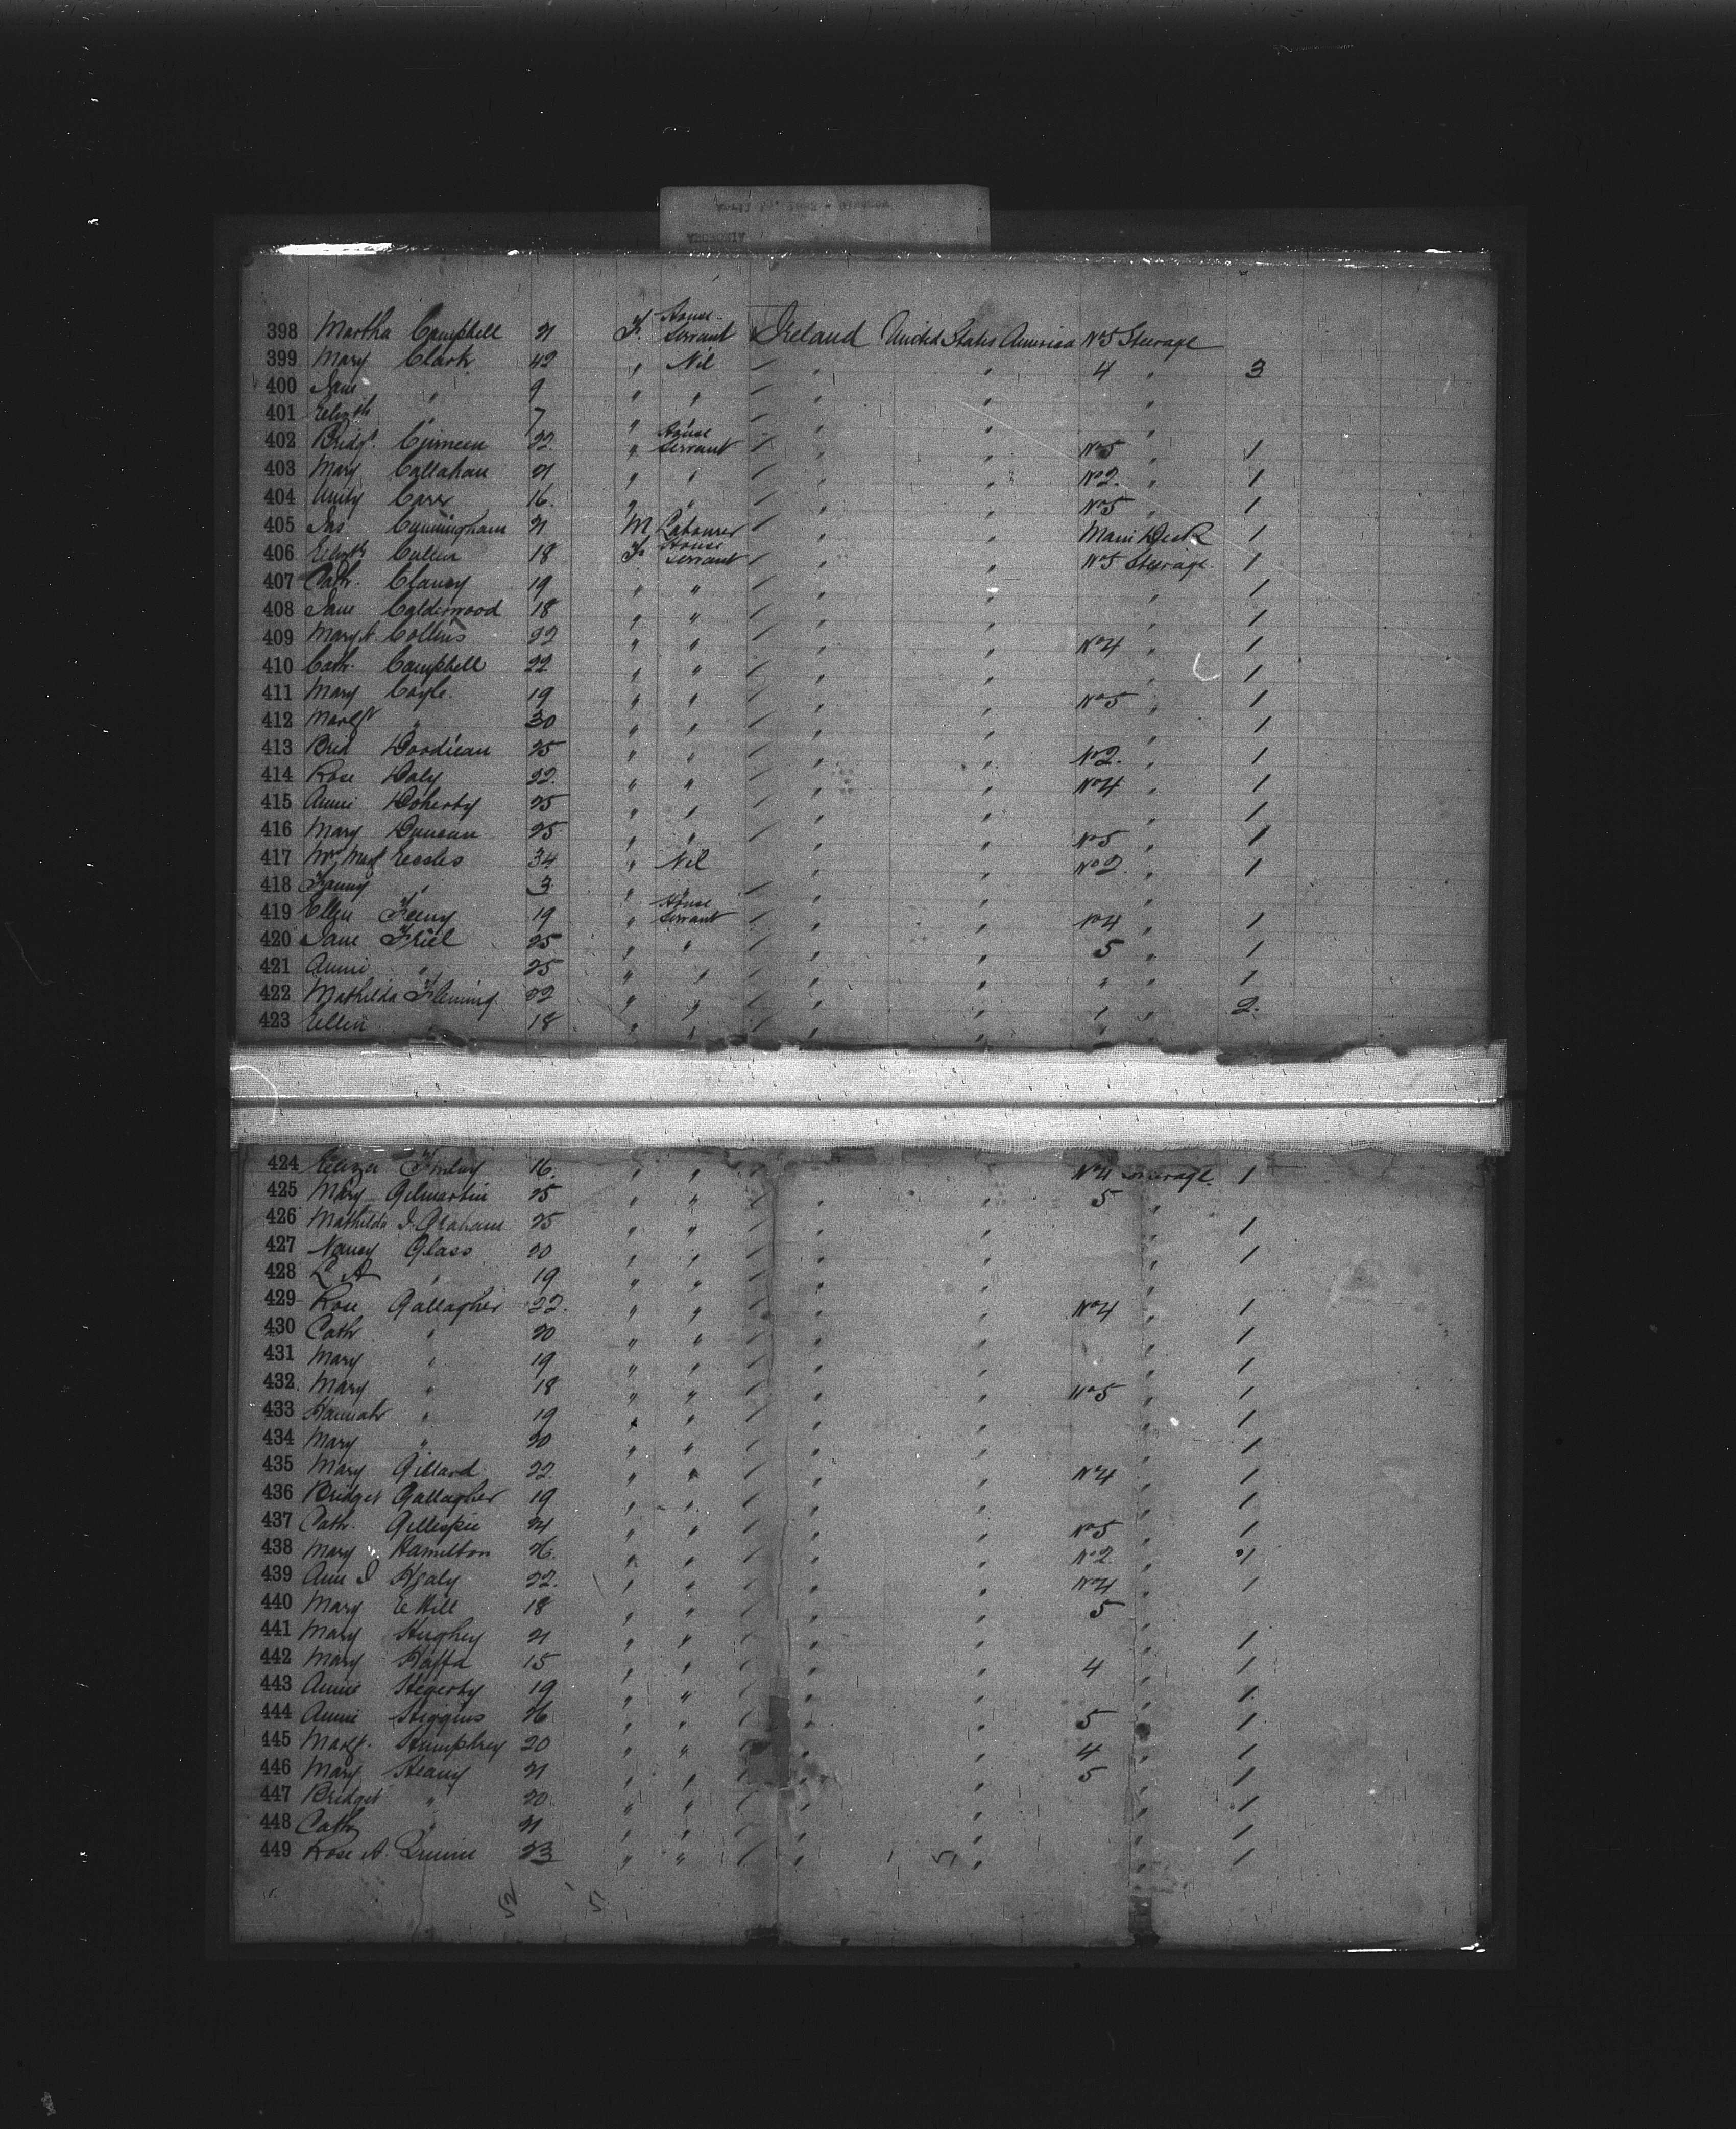 398 Martha Campbell 21 F. House Servant / Ireland United States America No 5 Steerage
399 Mary Clark 42 " Nil / " " 4 " 3
400 Jane " 9 " " / " " "
401 Elizth " 7 " " / " " "
402 Bridgt. 22. " House Servant / " " No 5 " 1
403 Mary Callahan 21 " " / " " No 2. " 1
404 Unity Carr 16. " " / " " No 5 " 1
405 Jas Cunningham 21 M Labourer / " " Main Deck 1
406 Elizth Cullen 18 F. House Servant / " " No 5 Steerage. 1
407 Cath. Clancy 19 " " / " " " 1
408 Jane Calderwood 18 " " / " " " 1
409 Mary A. Collins 22 " " / " " No 4 " 1
410 Cath. Campbell 22 " " / " " " 1
411 Mary Coyle. 19 " " / " " No 5 " 1
412 Margt " 30 " " / " " " 1
413 Brid 25 " " / " " No 2. " 1
414 Rose Daly 22. " " / " " No 4 " 1
415 Annie Doherty 25 " " / " " " 1
416 Mary Duncan 25 " " / " " No 5 " 1
417 Mrs Magt Eccles 34 " Nil " " No 2. " 1
418 Fanny " 3 " " / " " "
419 Ellen Feeny 19 " House Servant / " " No 4 " 1
420 Jane Friel 25 " " / " " 5 " 1
421 Annie " 25 " " / " " " " 1
422 Mathilda Fleming. 22 " " / " " " " 2.
423 Ellen " 18 " " / " " " "
424 Eliza Finlay 16. " " / " No 4 Steerage. 1
425 Mary Gilmartin 25 " " / " " 5 "
426 Mathilda J. Graham 25 " " / " " " 1
427 Nancy Glass 20 " " / " " " 1
428 L. A " 19 " " / " " "
429 Rose Gallagher 22. " " / " " No 4 " 1
430 Cath " 20 " " / " " " 1
431 Mary " 19 " " / " " " 1
432. Mary " 18 " " / " " No 5 " 1
433 Hannah " 19 " " / " " " 1
434 Mary " 20 " " / " " " 1
435 Mary Gillard 22. " " / " " No 4 " 1
436 Bridget Gallagher 19 " " / " " " 1
437 Cath. Gillespie 21 " " / " " No 5 " 1
438 Mary Hamilton 26. " " / " " No 2. " 1
439 Ann J Healy 22. " " / " " No 4 " 1
440 Mary E Hill 18 " " / " " 5 "
441 Mary Hughey 21 " " / " " " 1
442 Mary 15 " " / " " 4 " 1
443 Annie Hegerty 19 " " / " " " 1
444 Annie Higgins 26 " " / " " 5 " 1
445 Margt. Humphrey 20 " " / " " 4 " 1
446 Mary Heany 21 " " / " " 5 " 1
447 Bridget " 20 " " / " " " 1
448 Cath " 21 " " / " " " 1
449 Rose A. Quinn 23 " " / " " " 1